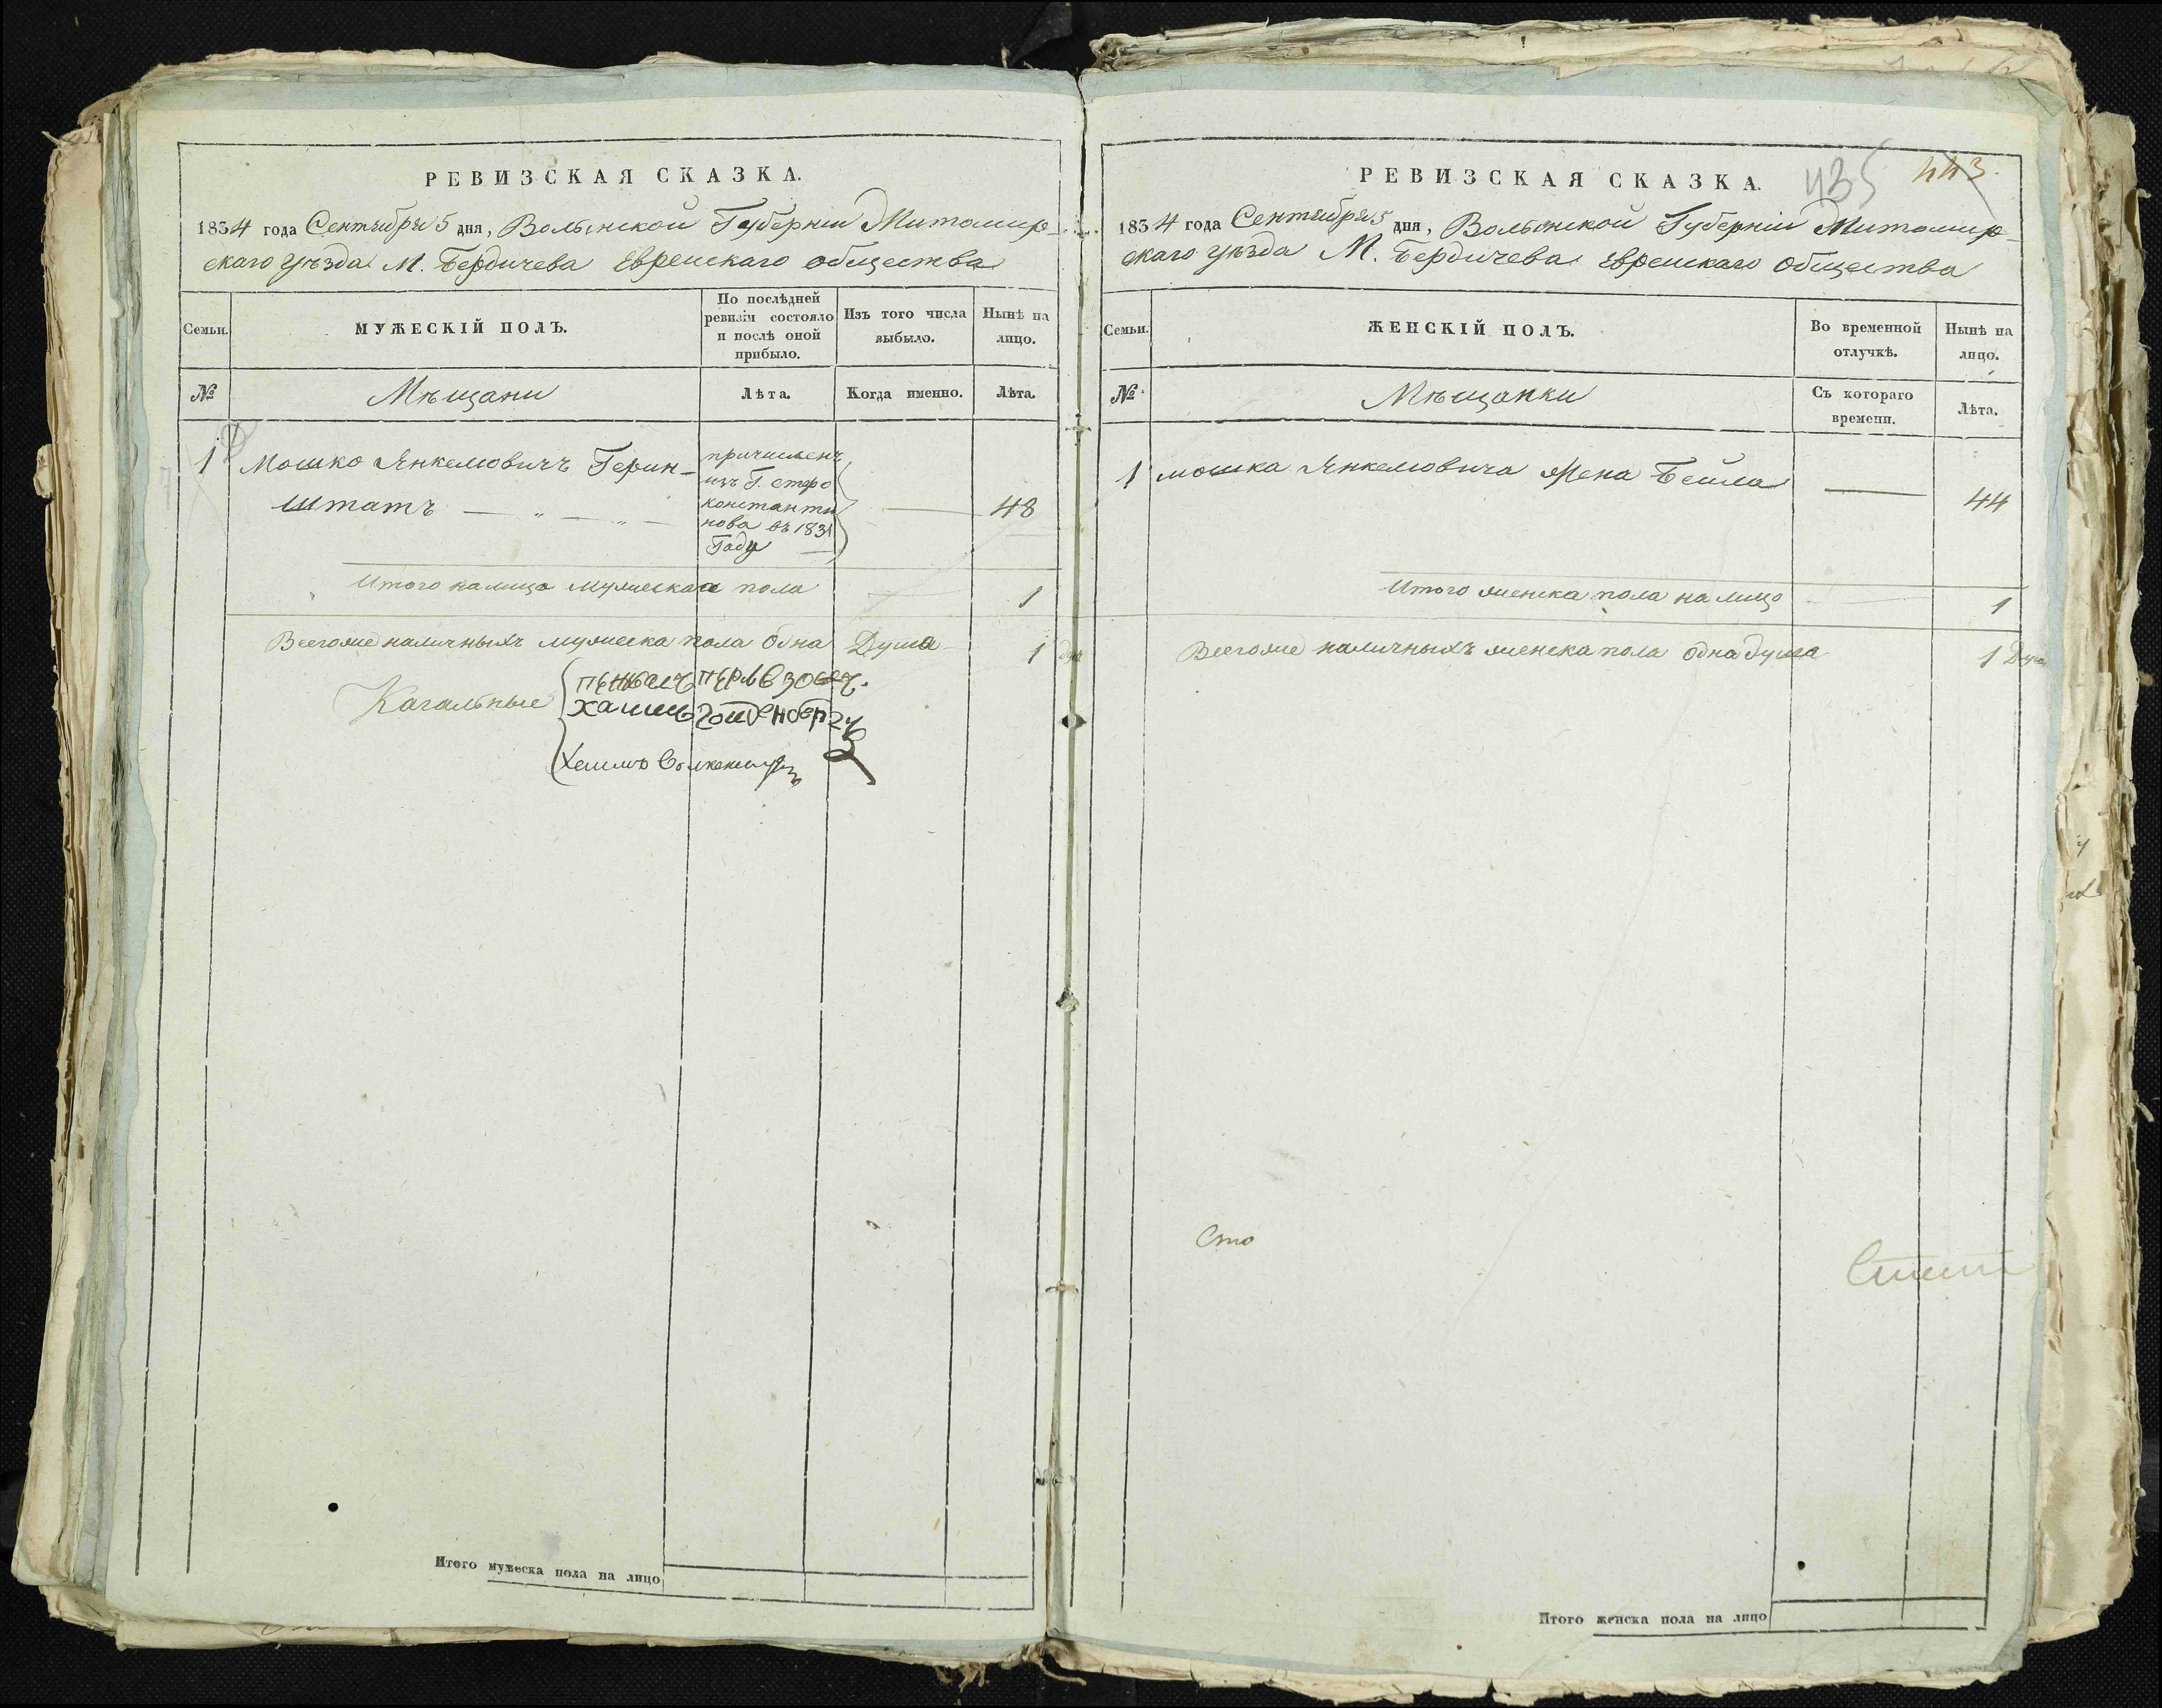 РЕВИЗСКАЯ СКАЗКА.
1834 года Сентября 5 дня, Волынской Губерніи Житомир-
скаго уѣзда М. Бердичева Еврейскаго общества
Семьи.
МУЖЕСКІЙ ПОЛЪ.
По послѣдней ревизіи состояло и послѣ оной прибыло.
Изъ того числа выбыло.
Нынѣ на лицо.
№
Мѣщани
Лѣта.
Когда именно.
Лѣта.
1
Мошко Янкелювичъ Герин-
штатъ
причисленъ
изъ Г. старо
константи
нова въ 1831
Году
48
Итого налицо мужеска пола
1
Всегоже наличныхъ мужеска пола одна Душа
1
Кагальные
Хаимъ
РЕВИЗСКАЯ СКАЗКА.
435
443.
1834 года Сентября 5 дня, Волынской Губерніи Житомир-
скаго уѣзда М. Бердичева Еврейскаго общества
Семьи.
ЖЕНСКІЙ ПОЛЪ.
Во временной отлучкѣ.
Нынѣ на лицо.
№
Мѣщанки
Съ котораго времени.
Лѣта.
1
мошка Янкелювича Жена Бейла
44
Итого женска пола на лицо
1
Всегоже наличныхъ женска пола одна душа
1 Душа
Сто
Итого мужеска пола на лицо
Итого женска пола на лицо